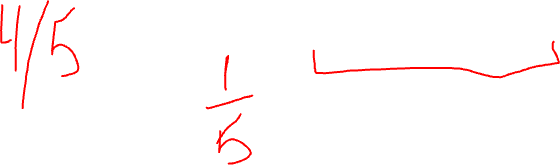 4/5
1/5